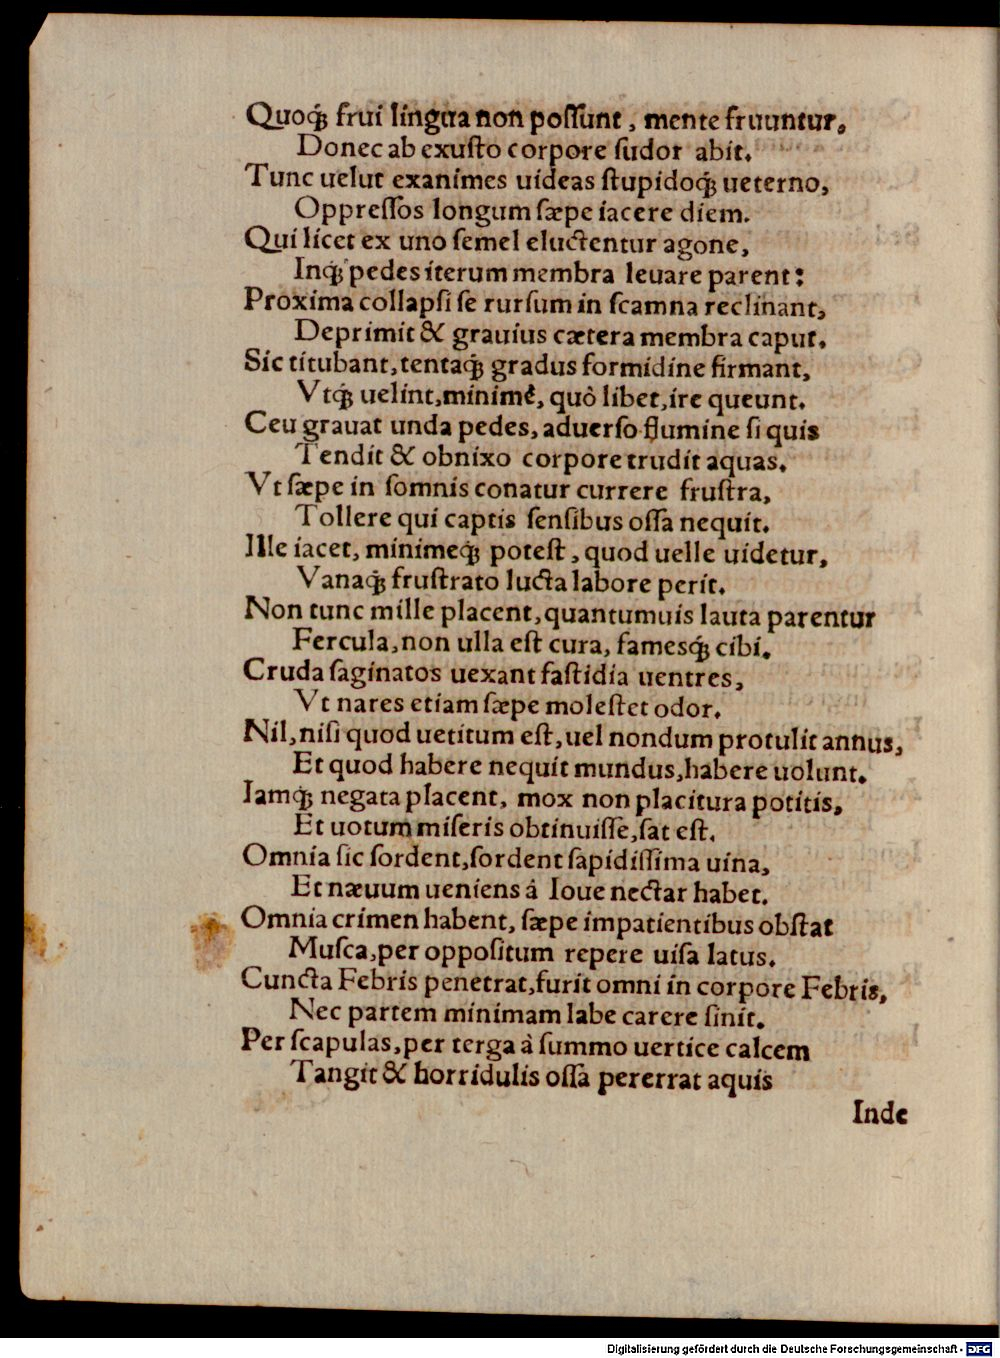 Quoq́ꝫ frui lingua non poſſunt, mente fruuntur,
Donec ab exuſto corpore ſudor abit.
Tunc uelut exanimes uideas ſtupidoq́ꝫ ueterno,
Oppreſſos longum ſæpe iacere diem.
Qui licet ex uno ſemel eluctentur agone,
Inq́ꝫ pedes iterum membra leuare parent:
Proxima collapſi ſe rurſum in ſcamna reclinant,
Deprimit & grauius cætera membra caput.
Sic titubant, tentaq́ꝫ gradus formidine firmant,
Vtq́ꝫ uelint, minimè, quò libet, ire queunt.
Ceu grauat unda pedes, aduerſo flumine ſi quis
Tendit & obnixo corpore trudit aquas.
Vt ſæpe in ſomnis conatur currere fruſtra,
Tollere qui captis ſenſibus oſſa nequit.
Ille iacet, minimeq́ꝫ poteſt, quod uelle uidetur,
Vanaq́ꝫ fruſtrato lucta labore perit.
Non tunc mille placent, quantumuis lauta parentur
Fercula, non ulla eſt cura, famesq́ꝫ cibi.
Cruda ſaginatos uexant faſtidia uentres,
Vt nares etiam ſæpe moleſtet odor.
Nil, niſi quod uetitum eſt, uel nondum protulit annus,
Et quod habere nequit mundus, habere uolunt.
Iamq́ꝫ negata placent, mox non placitura potitis,
Et uotum miſeris obtinuiſſe, ſat eſt.
Omnia ſic ſordent, ſordent ſapidiſſima uina,
Et næuum ueniens á Ioue nectar habet.
Omnia crimen habent, ſæpe impatientibus obſtat
Muſca, per oppoſitum repere uiſa latus.
Cuncta Febris penetrat, furit omni in corpore Febris,
Nec partem minimam labe carere ſinit.
Per ſcapulas, per terga à ſummo uertice calcem
Tangit & horridulis oſſa pererrat aquis
Inde
Digitalisierung gefördert durch die Deutsche Forschungsgemeinschaft - DFG